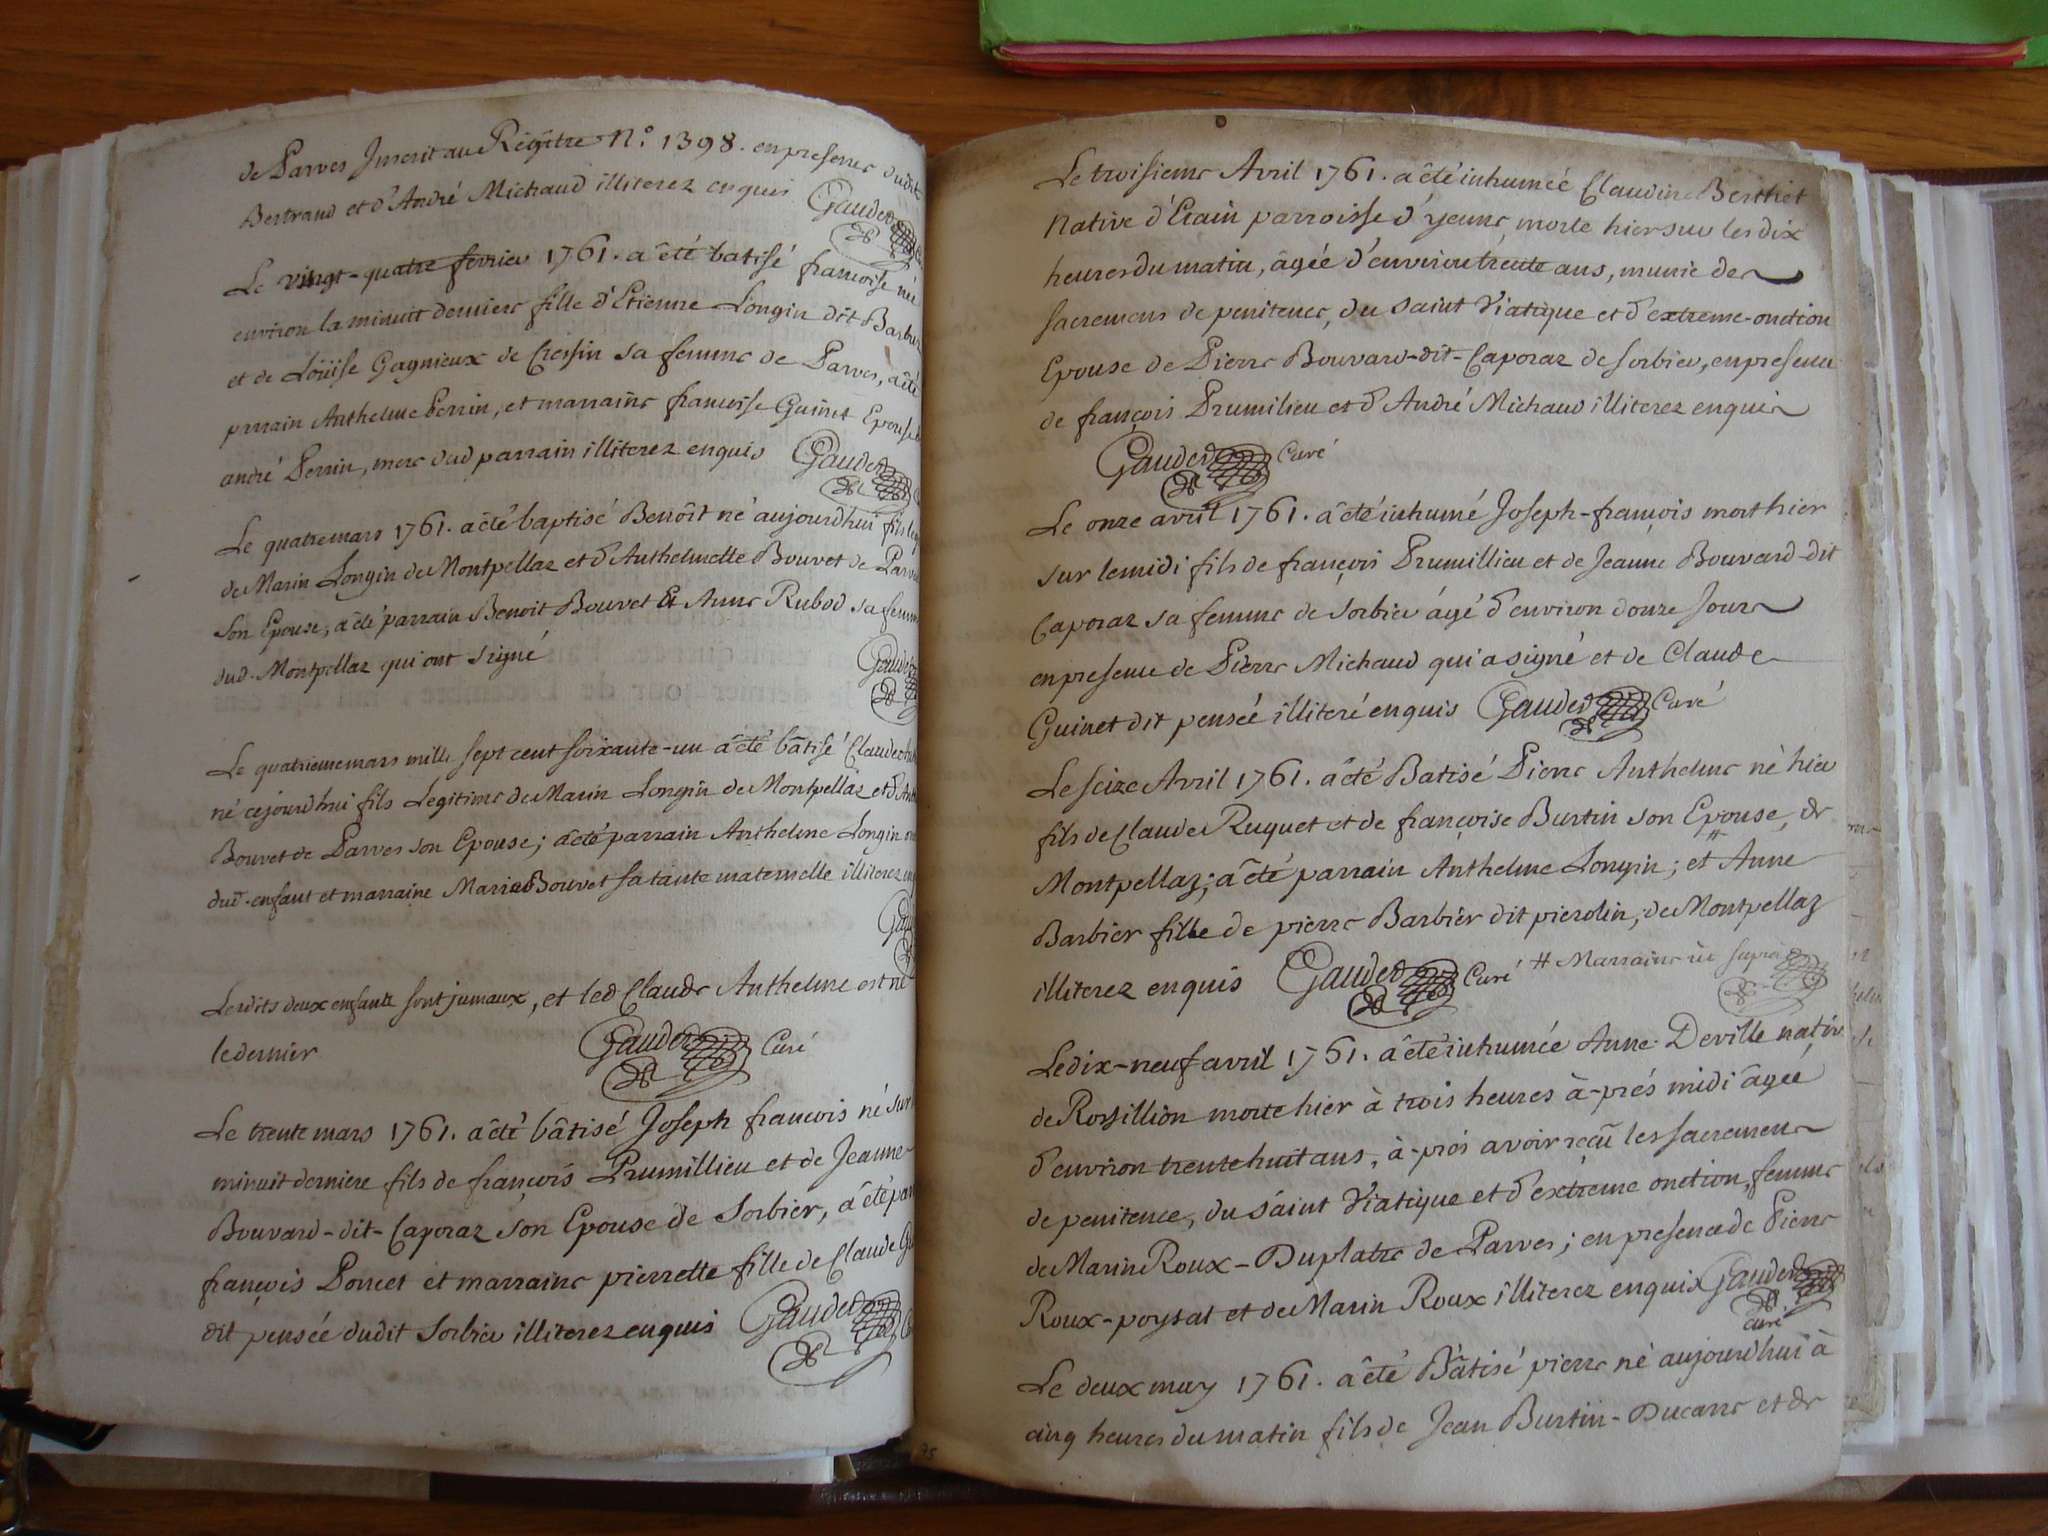 de Parves Inscrit au Régître N.° 1398. en presence dudit
Bertrand et d'André Michaud illiterez enquis Gauder
Le vingt-quatre fevrier 1761. a êté batisé francoise née
environ la minuit derniere fille d'Etienne Longin dit Barbu
et de Loüise Gagnieux de Cressin sa femme de Parves, a êté
parrain Anthelme Perrin, et marraine francoise Guinet Epouse
andré Perrin, mere dud parrain illiterez enquis Gauder
Le quatre mars 1761. a êté baptisé Benoît né aujourdhui fils
de Marin Longin de Montpellaz et d'Anthelmette Bouvet de Parves
son Epouse, a êté parrain Benoit Bouvet Et Anne Rubod sa femme
dud. Montpellaz qui ont signé Gauder
Le quatrieme mars mille sept cent soixante-un a êté bâtisé Claude
né cejourd'hui fils Legitime de Marin Longin de Montpellaz et d'
Bouvet de Parves son Epouse; a êté parrain Anthelme Longin
dud. enfant et marraine Marie Bouvet sa tante maternelle illiterez
Lesdits deux enfants sont jumaux, et led Claude Anthelme est né
le dernier Gauder Curé
Le trente mars 1761. a êté bâtisé Joseph francois né sur
minuit derniere fils de françois Prumillieu et de Jeanne
Bouvard-dit-Caporaz son Epouse de Sorbier, a êté
françois Poncet et marraine pierrette fille de Claude
dit pensée dudit Sorbier illiterez enquis Gauder
Le troisieme Avril 1761. a êté inhumée Claudine Berthet
Native d'Etain parroisse d'yenne, morte hier sur les dix
heures du matin, âgée d'environ trente ans, munie des
sacremens de penitence, du saint Viatique et d'extreme-onction
Epouse de Pierre Bouvard-dit-Caporaz de sorbier, en presence
de françois Prumilieu et d'André Michaud illiterez enquis
Gauder Curé
Le onze avril 1761. a êté inhumé Joseph-françois mort hier
sur le midi fils de françois Prumillieu et de Jeanne Bouvard-dit
Caporaz sa femme de sorbier âgé d'environ douze Jours
en presence de Pierre Michaud qui a signé et de Claude
Guinet dit pensée illiteré enquis Gauder Curé
Le seize Avril 1761. a êté Batisé Pierre Anthelme né hier
fils de Claude Ruquet et de françoise Burtin son Epouse, de
Montpellaz; a êté parrain Anthelme Longin; et # Anne
Barbier fille de pierre Barbier dit pierolin, de Montpellaz
illiterez enquis Gauder Curé # Marraine ut supra
Le dix-neuf avril 1761. a êté inhumée Anne Deville native
de Rossillion morte hier à trois heures à-prés midi âgée
d'environ trente huit ans, à-prés avoir reçû les sacremens
de penitence, du saint Viatique et d'extreme onction, femme
de Marin Roux-Duplatre de Parves; en presence de Pierre
Roux-poysat et de Marin Roux illiterez enquis Gauder
curé
Le deux may 1761. a êté Bâtisé pierre né aujourdhui à
cinq heures du matin fils de Jean Burtin-Ducarre et de